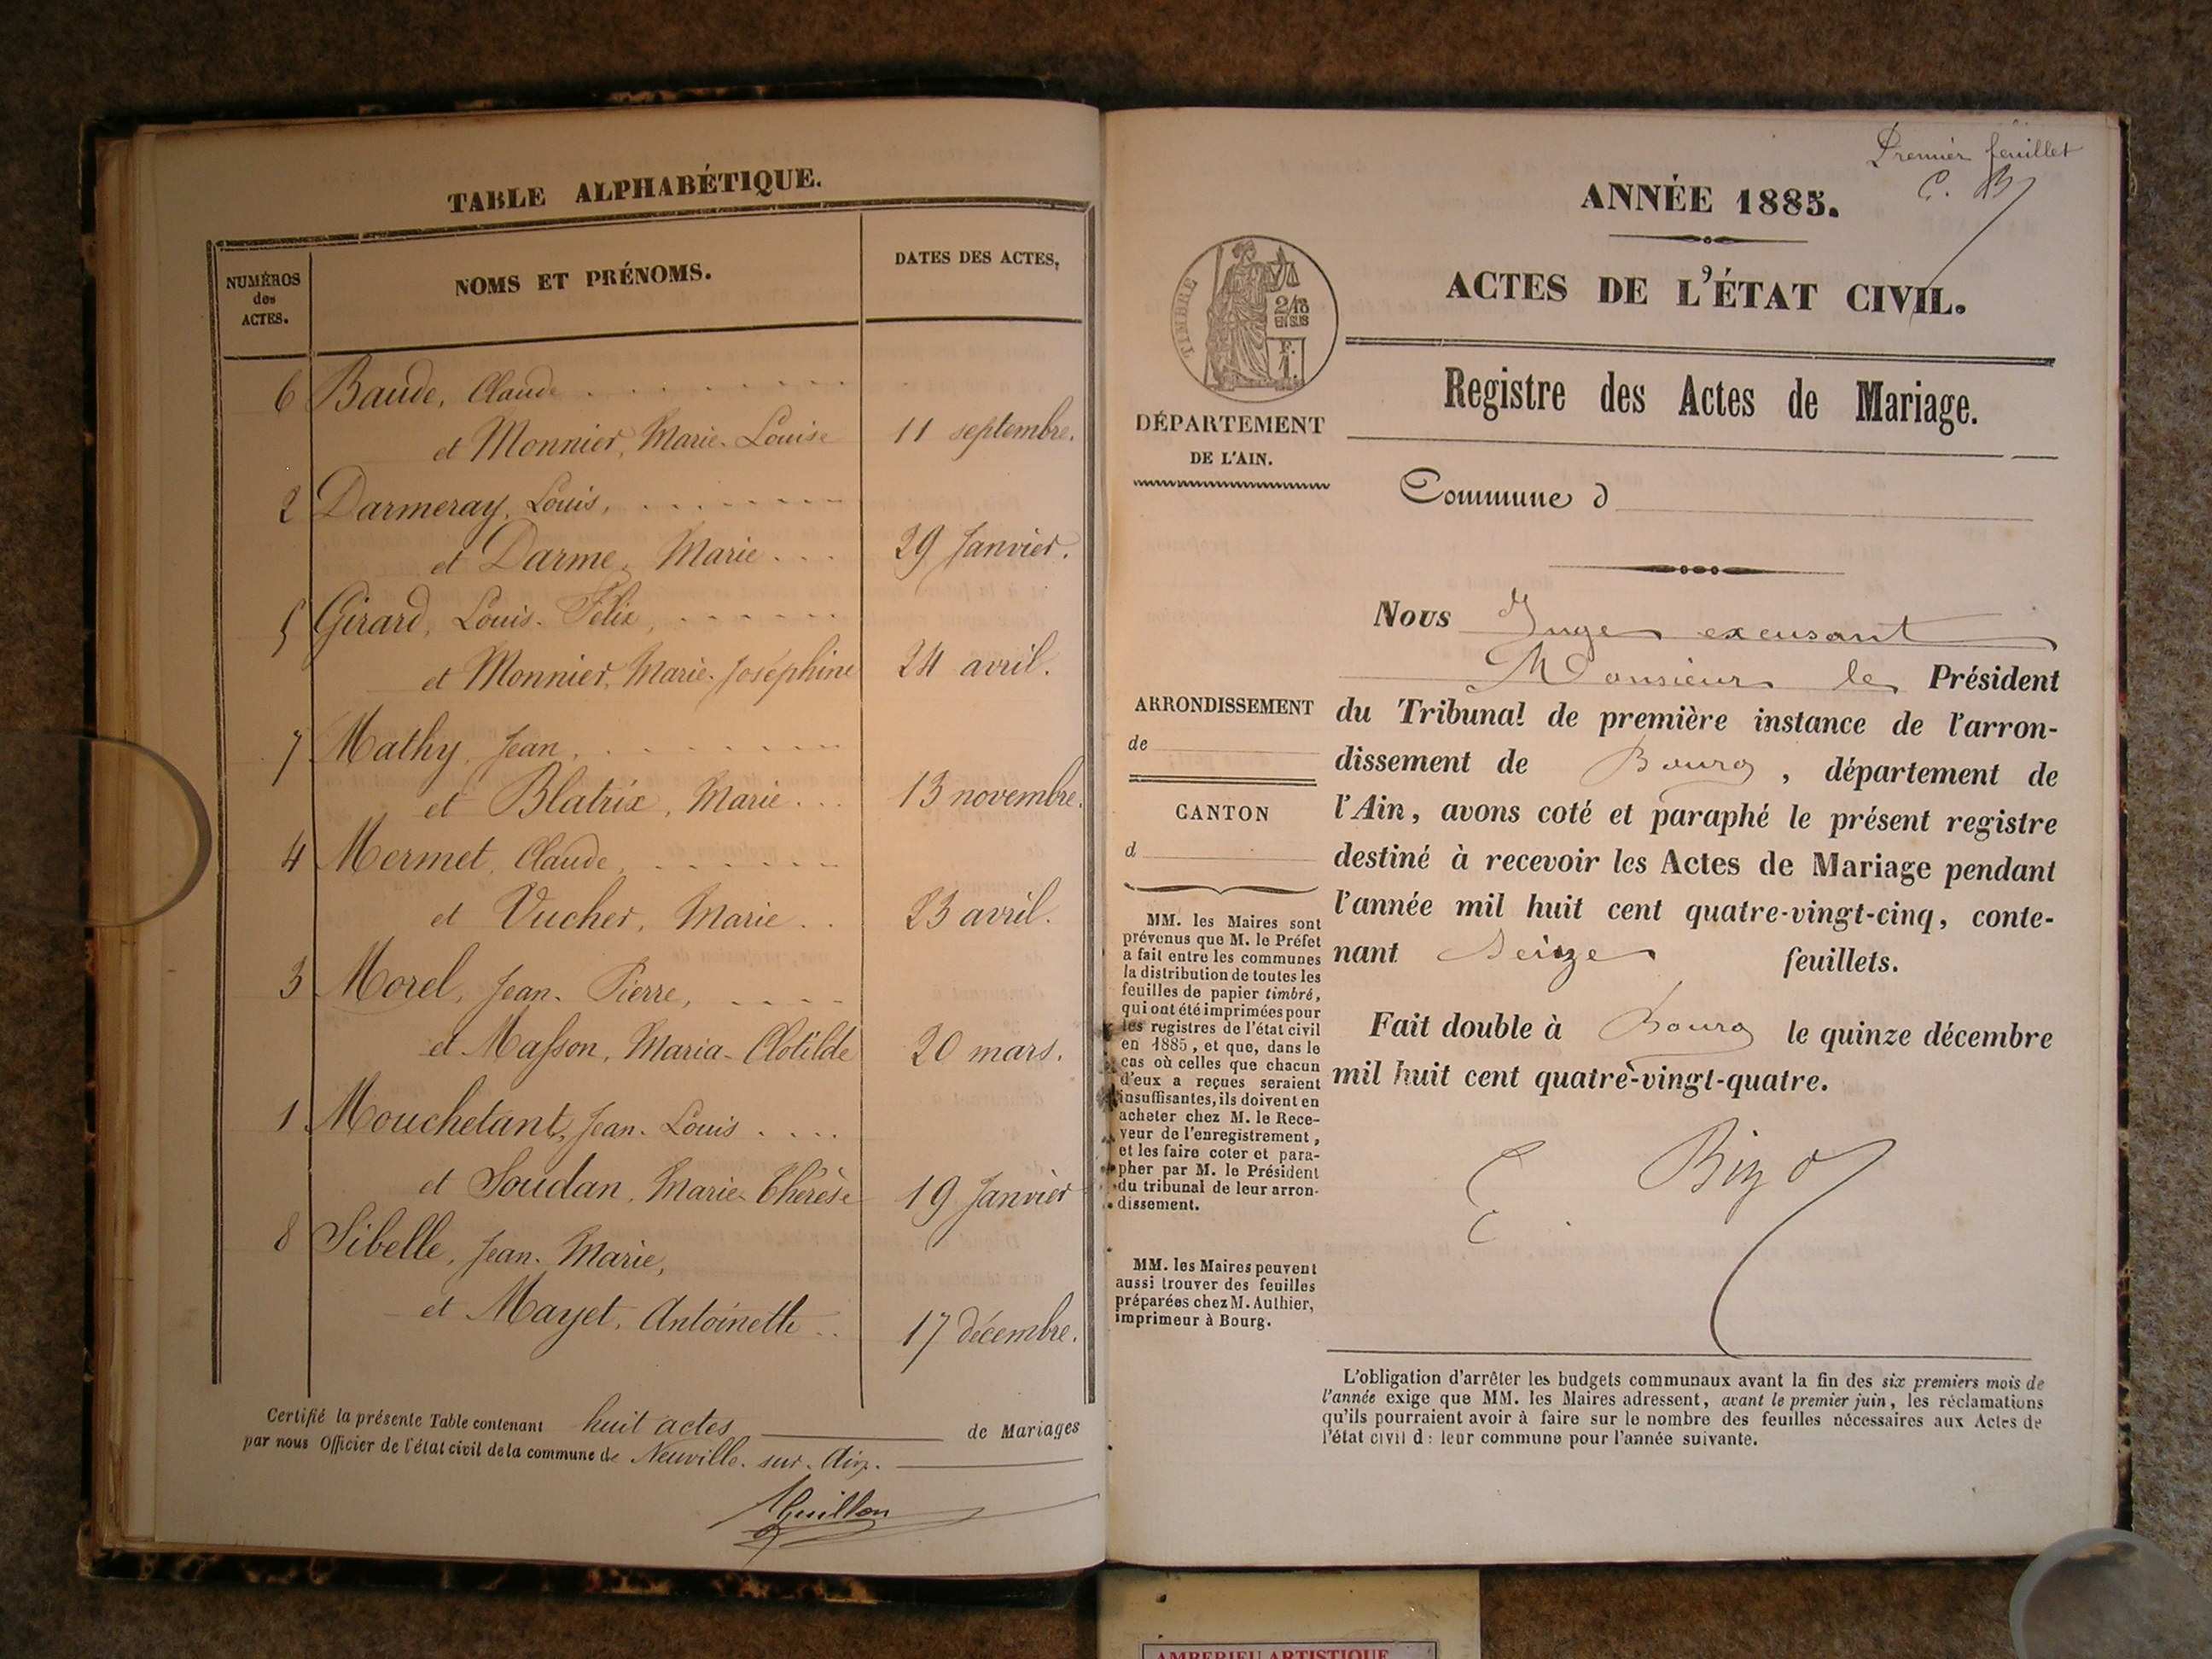 TABLE ALPHABÉTIQUE.
NUMÉROS
des
ACTES.
NOMS ET PRÉNOMS.
DATES DES ACTES,
6 Baude, Claude
et Monnier, Marie-Louise 11 septembre.
2 Darmeray, Louis,
et Darme, Marie 29 Janvier.
5 Girard, Louis-Félix,
et Monnier, Marie-Joséphine 24 avril.
7 Mathy, Jean,
et Blatrix, Marie 13 novembre.
4 Mermet, Claude,
et Vucher, Marie 23 avril.
3 Morel, Jean-Pierre,
et Masson, Maria-Clotilde 20 mars.
1 Mouchetant, Jean-Louis
et Soudan, Marie-Thérèse 19 Janvier
8 Sibelle, Jean-Marie,
et Mayet, Antoinette 17 décembre.
Certifié la présente Table contenant huit actes de Mariages
par nous Officier de l'état civil de la commune de Neuville-sur-Ain.
Guillon
Premier feuillet
C. B
ANNÉE 1885.
ACTES DE L'ÉTAT CIVIL.
TIMBRE
2/10
EN SUS
F.
1.
Registre des Actes de Mariage.
DÉPARTEMENT
DE L'AIN.
Commune d
ARRONDISSEMENT
de
CANTON
d
MM. les Maires sont
prévenus que M. le Préfet
a fait entre les communes
la distribution de toutes les
feuilles de papier timbré,
qui ont été imprimées pour
les registres de l'état civil
en 1885, et que, dans le
cas où celles que chacun
d'eux a reçues seraient
insuffisantes, ils doivent en
acheter chez M. le Rece-
veur de l'enregistrement,
et les faire coter et para-
pher par M. le Président
du tribunal de leur arron-
dissement.
MM. les Maires peuvent
aussi trouver des feuilles
préparées chez M. Authier,
imprimeur à Bourg.
Nous Juge excusant
Monsieur le Président
du Tribunal de première instance de l'arron-
dissement de Bourg, département de
l'Ain, avons coté et paraphé le présent registre
destiné à recevoir les Actes de Mariage pendant
l'année mil huit cent quatre-vingt-cinq, conte-
nant Seize feuillets.
Fait double à Bourg le quinze décembre
mil huit cent quatre-vingt-quatre.
L'obligation d'arrêter les budgets communaux avant la fin des six premiers mois de
l'année exige que MM. les Maires adressent, avant le premier juin, les réclamations
qu'ils pourraient avoir à faire sur le nombre des feuilles nécessaires aux Actes de
l'état civil d: leur commune pour l'année suivante.
AMBERIEU ARTISTIQUE